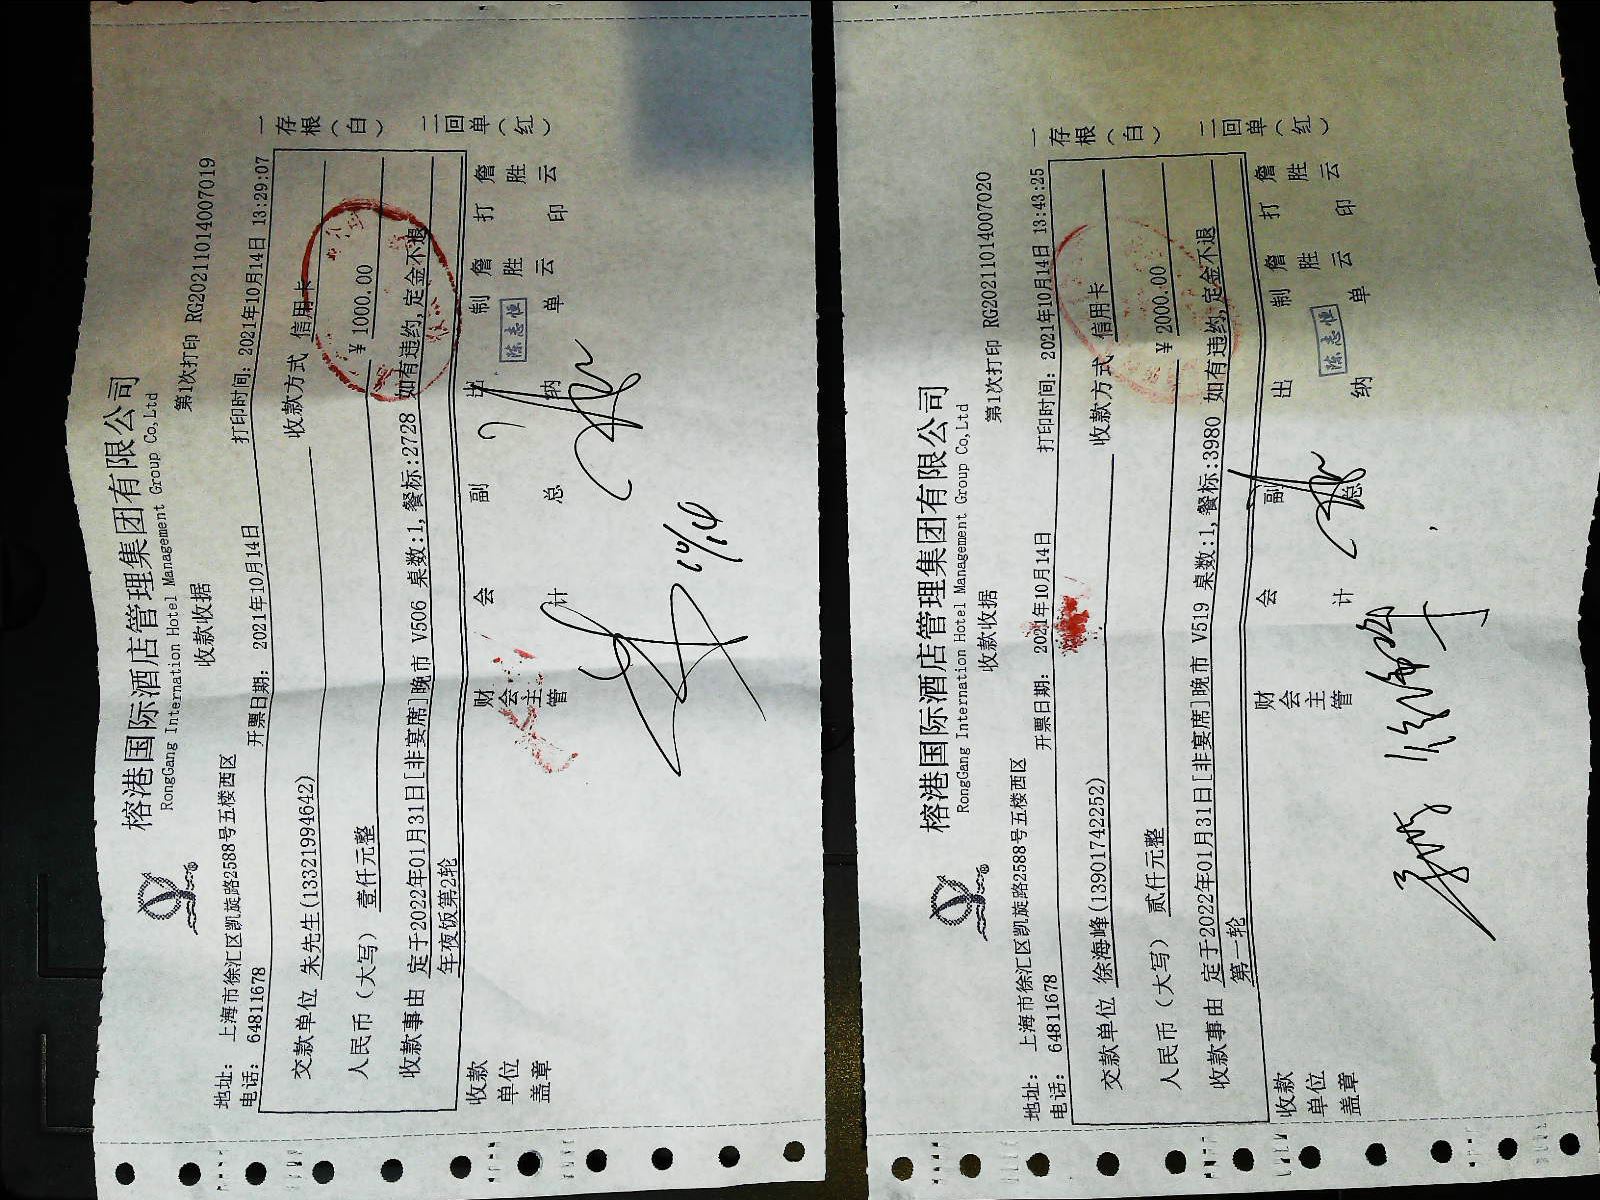 榕港国际酒店管理集团有限公司
RongGang Internation Hotel Management Group Co,Ltd
收款收据
第1次打印 RG20211014007019
地址: 上海市徐汇区凯旋路2588号五楼西区
电话: 64811678
开票日期: 2021年10月14日
打印时间: 2021年10月14日 13:29:07
交款单位 朱先生(13321994642)
收款方式 信用卡
人民币（大写） 壹仟元整
¥ 1000.00
收款事由 定于2022年01月31日[非宴席]晚市 V506 桌数:1,餐标:2728 如有违约,定金不退
年夜饭第2轮
一存根（白） 二回单（红）
收款单位盖章
财会主管
会计
副总
出纳
陈志恒
制单 詹胜云
打印 詹胜云
10/14
榕港国际酒店管理集团有限公司
RongGang Internation Hotel Management Group Co,Ltd
收款收据
第1次打印 RG20211014007020
地址: 上海市徐汇区凯旋路2588号五楼西区
电话: 64811678
开票日期: 2021年10月14日
打印时间: 2021年10月14日 13:43:25
交款单位 徐海峰(13901742252)
收款方式 信用卡
人民币（大写） 贰仟元整
¥ 2000.00
收款事由 定于2022年01月31日[非宴席]晚市 V519 桌数:1,餐标:3980 如有违约,定金不退
第一轮
一存根（白） 二回单（红）
收款单位盖章
财会主管
会计
副总
出纳
陈志恒
制单 詹胜云
打印 詹胜云